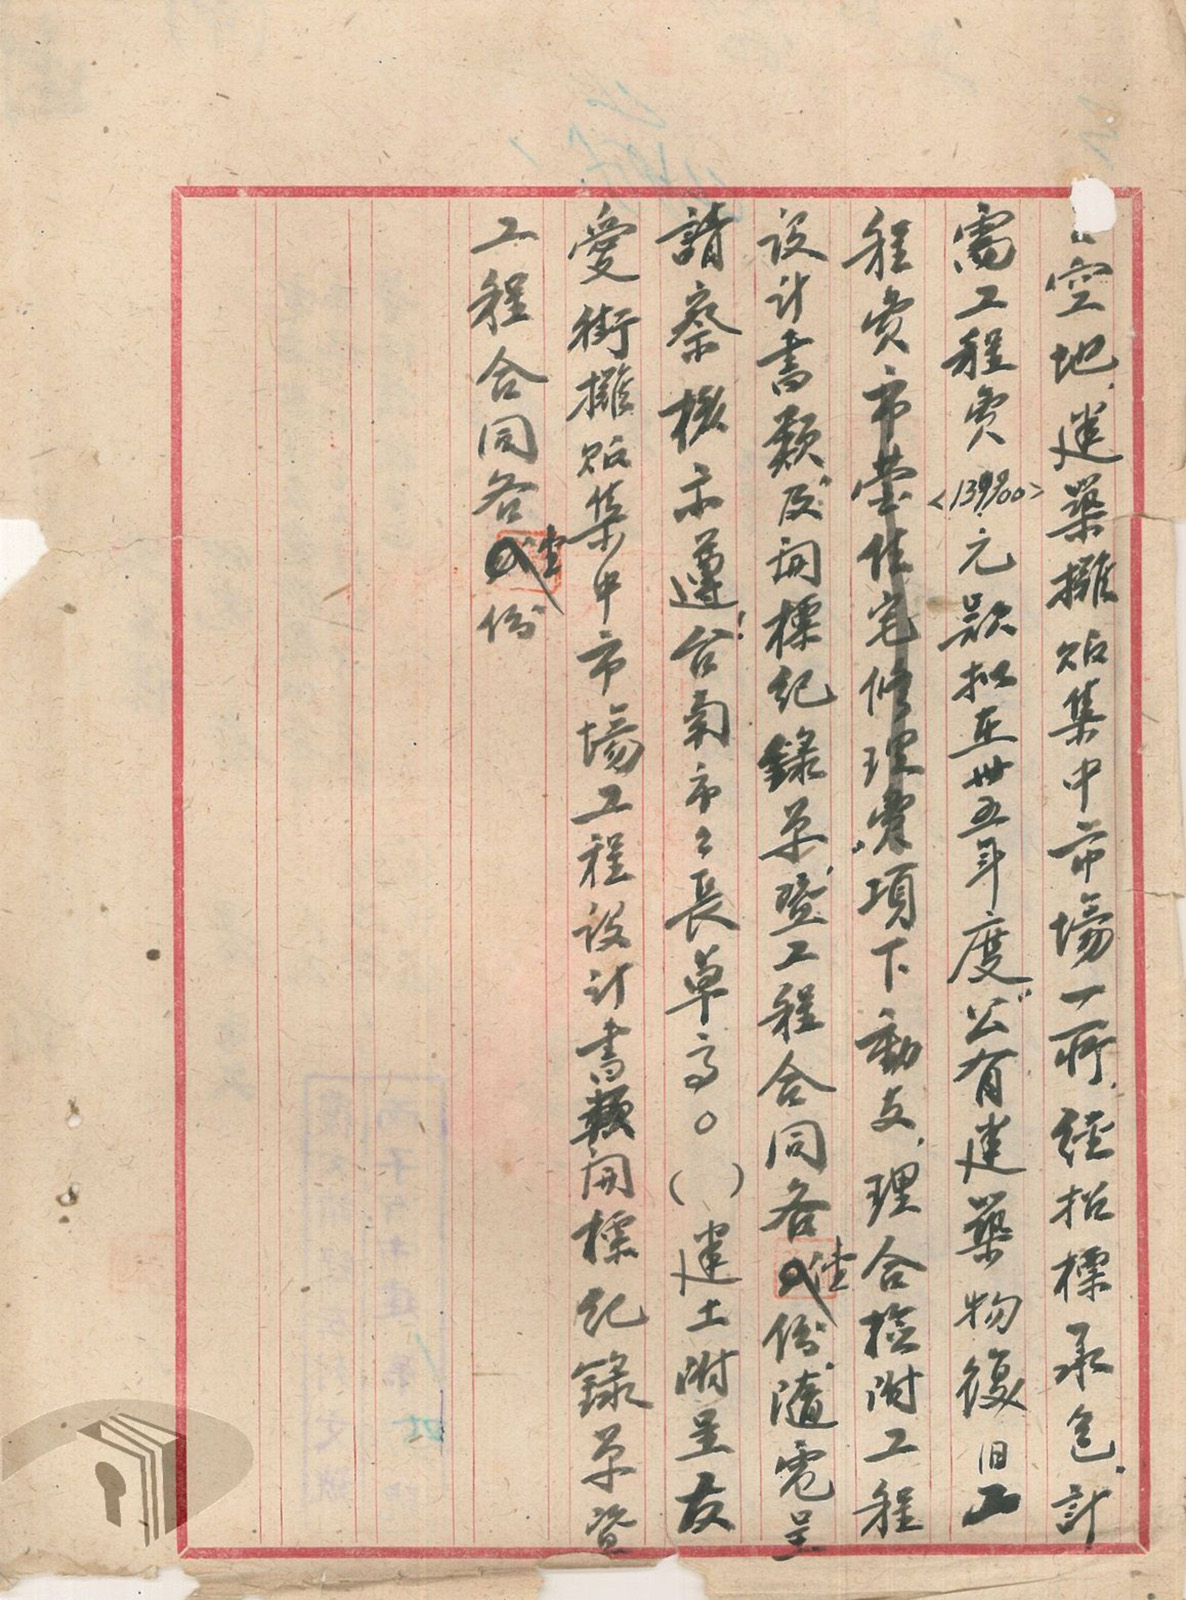 空地，建築攤販集中市場一所，經招標承包，計
需工程費<139900>元款拟在卅五年度“公有建築物復旧工
程費市營住宅修理費”項下動支，理合檢附工程
設計書類及開標紀錄单，暨工程合同各壹份，隨電呈
請察核示遵！台南市々長卓高。（ ）建土附呈友
愛街攤販集中市場工程設計書類開標紀錄单暨
工程合同各壹份